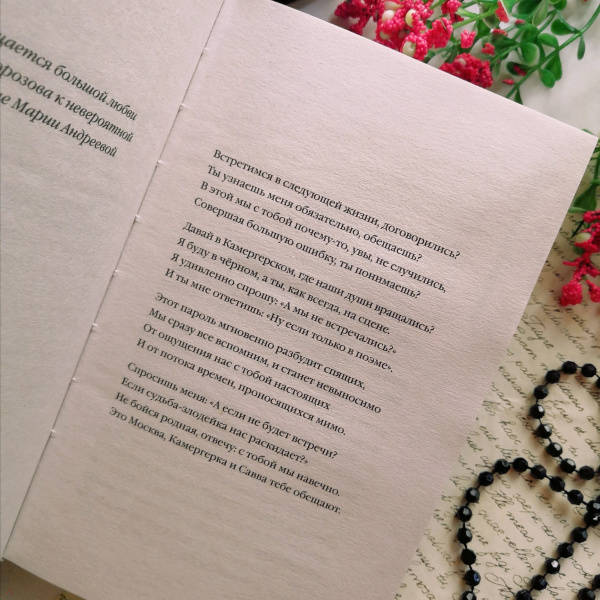 щается большой любви
орозова к невероятной
не Марии Андреевой
Встретимся в следующей жизни, договорились?
Ты узнаешь меня обязательно, обещаешь?
В этой мы с тобой почему-то, увы, не случились,
Совершая большую ошибку, ты понимаешь?
Давай в Камергерском, где наши души вращались?
Я буду в чёрном, а ты, как всегда, на сцене.
Я удивленно спрошу: «А мы не встречались?»
И ты мне ответишь: «Ну если только в поэме».
Этот пароль мгновенно разбудит спящих,
Мы сразу все вспомним, и станет невыносимо
От ощущения нас с тобой настоящих
И от потока времен, проносящихся мимо.
Спросишь меня: «А если не будет встречи?
Если судьба-злодейка нас раскидает?»
Не бойся родная, отвечу: с тобой мы навечно.
Это Москва, Камергерка и Савва тебе обещают.